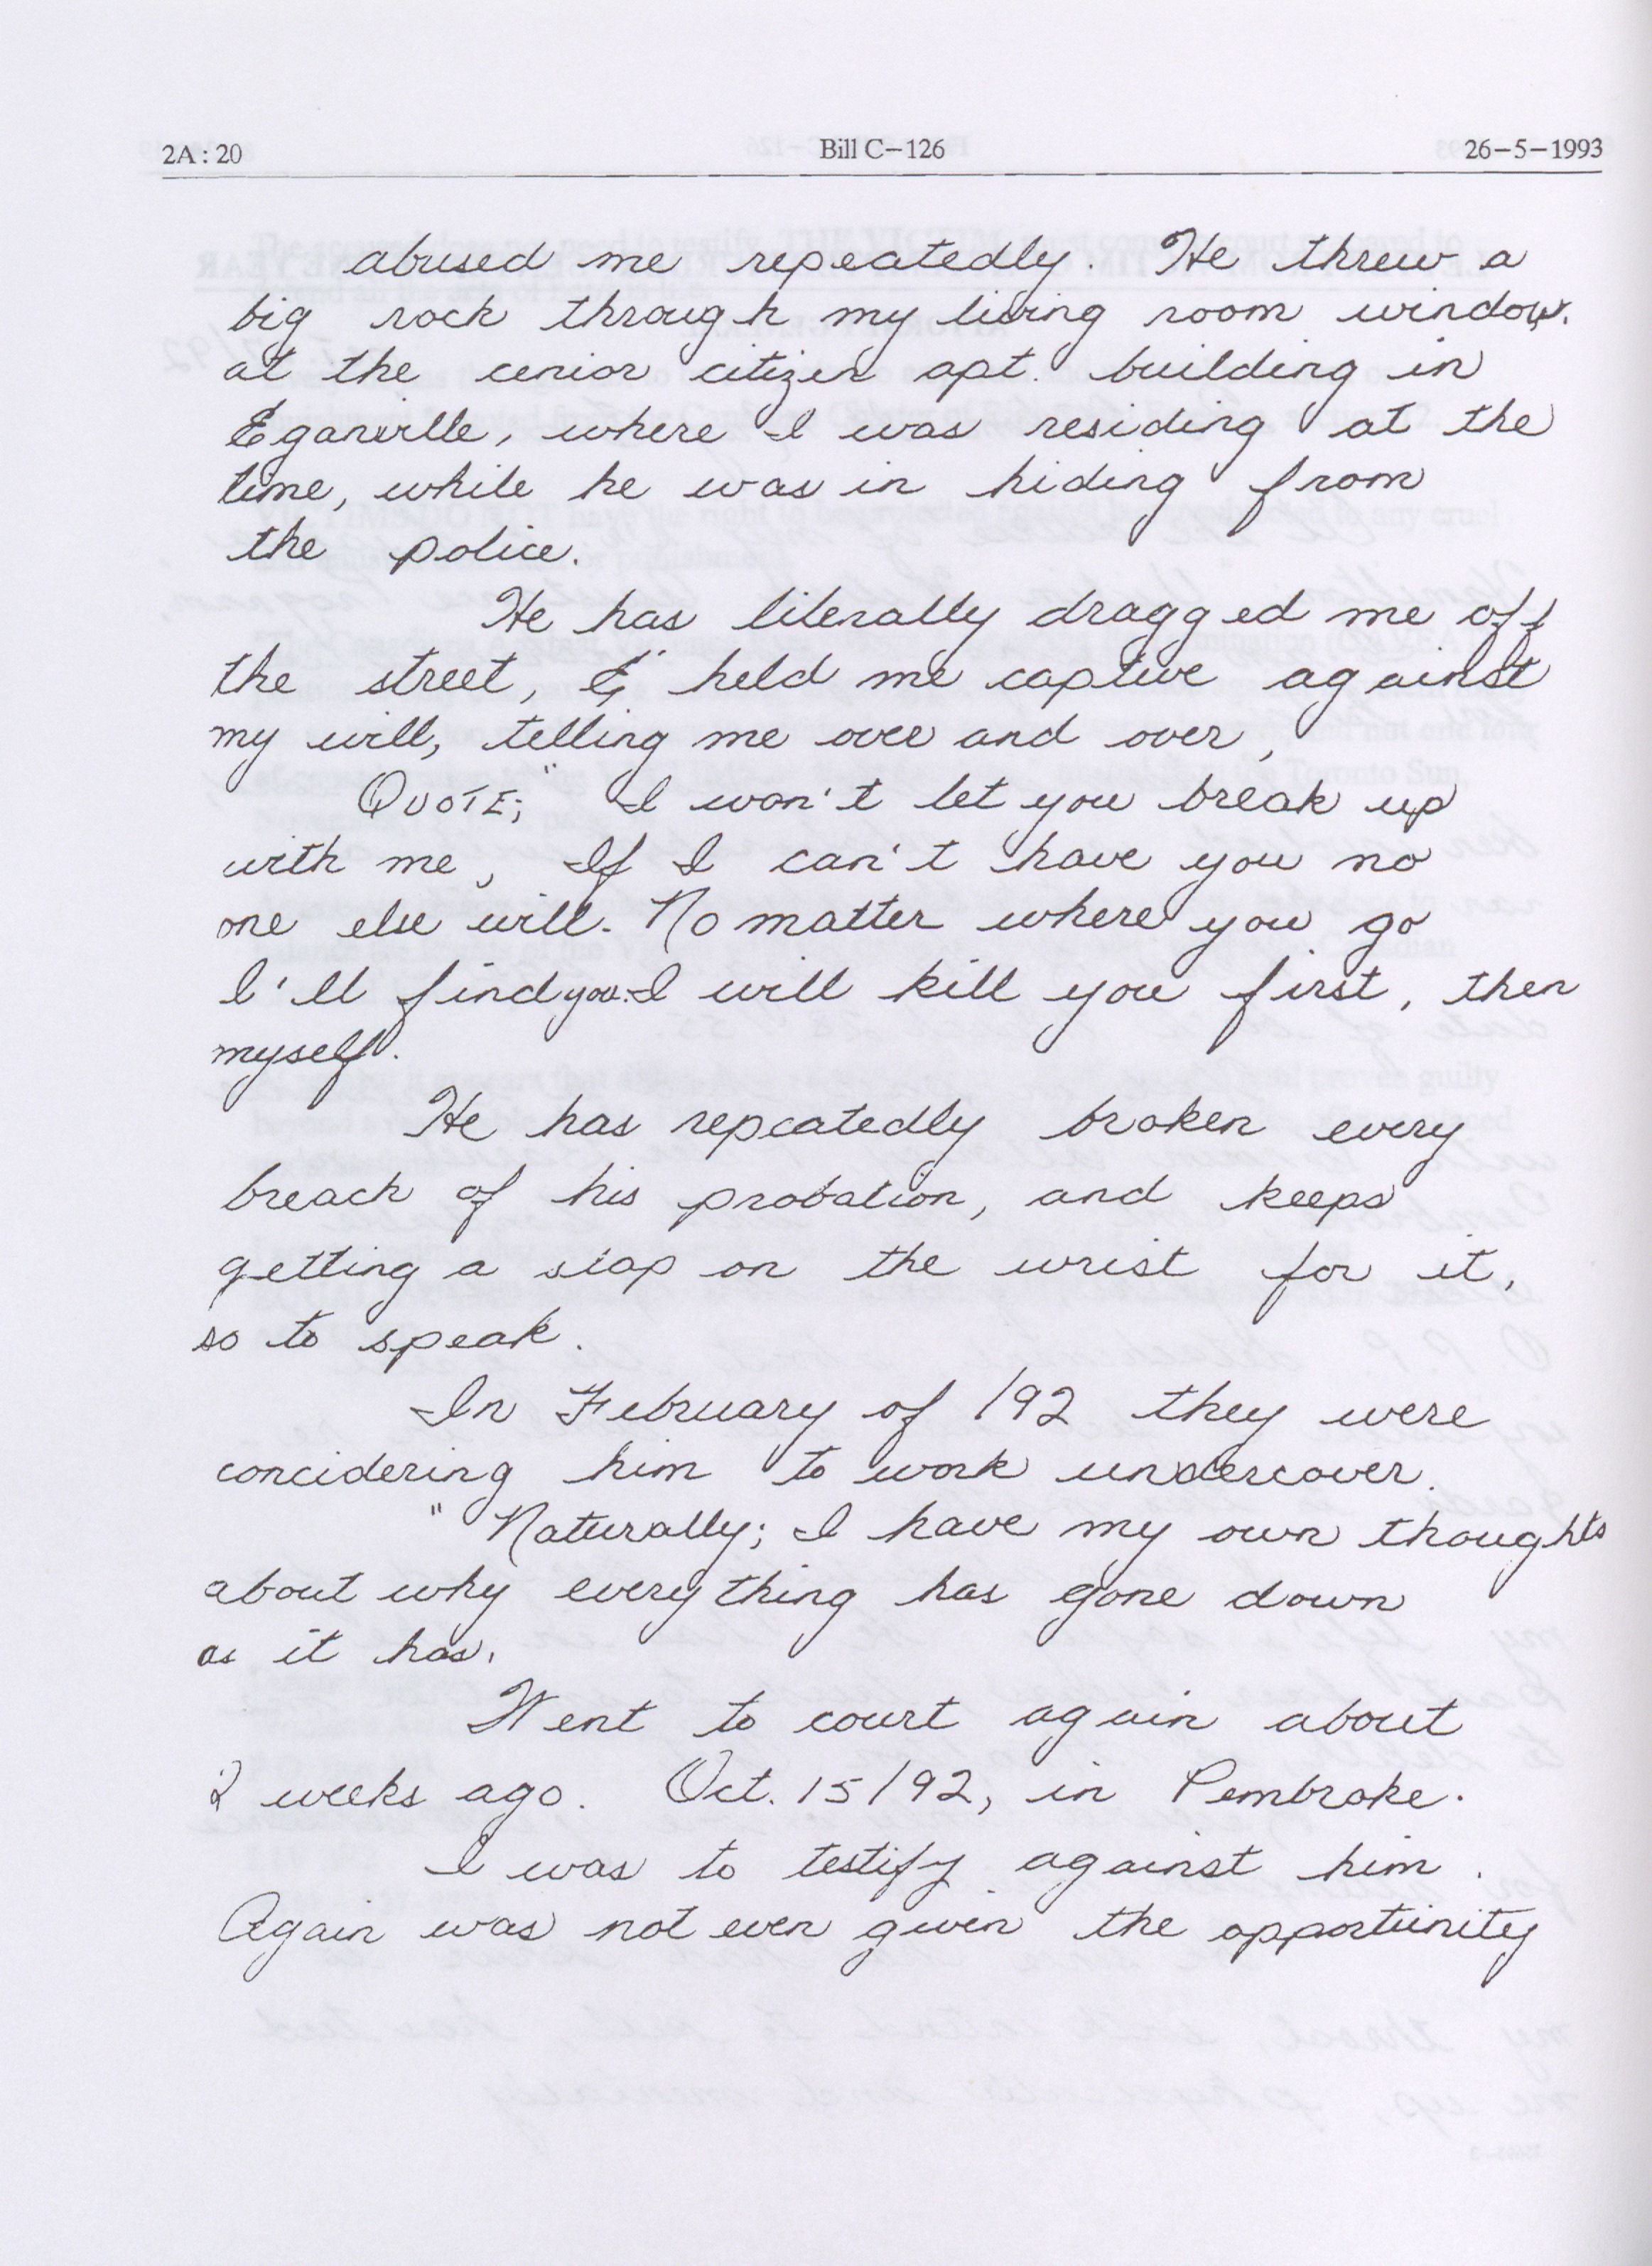 2A : 20 Bill C–126 26–5–1993
abused me repeatedly. He threw a
big rock through my living room window.
at the cenior citizen apt. building in
Eganville, where I was residing at the
time, while he was in hiding from
the police.
He has literally dragged me off
the street, & held me captive against
my will, telling me over and over,
QUOTE; " I won't let you break up
with me, If I can't have you no
one else will. No matter where you go
I'll find you. I will kill you first, then
myself.
He has repeatedly broken every
breach of his probation, and keeps
getting a slap on the wrist for it,
so to speak.
In February of /92 they were
concidering him to work undercover.
" Naturally; I have my own thoughts
about why everything has gone down
as it has.
Went to court again about
2 weeks ago. Oct. 15/92, in Pembroke.
I was to testify against him.
Again was not even given the opportunity